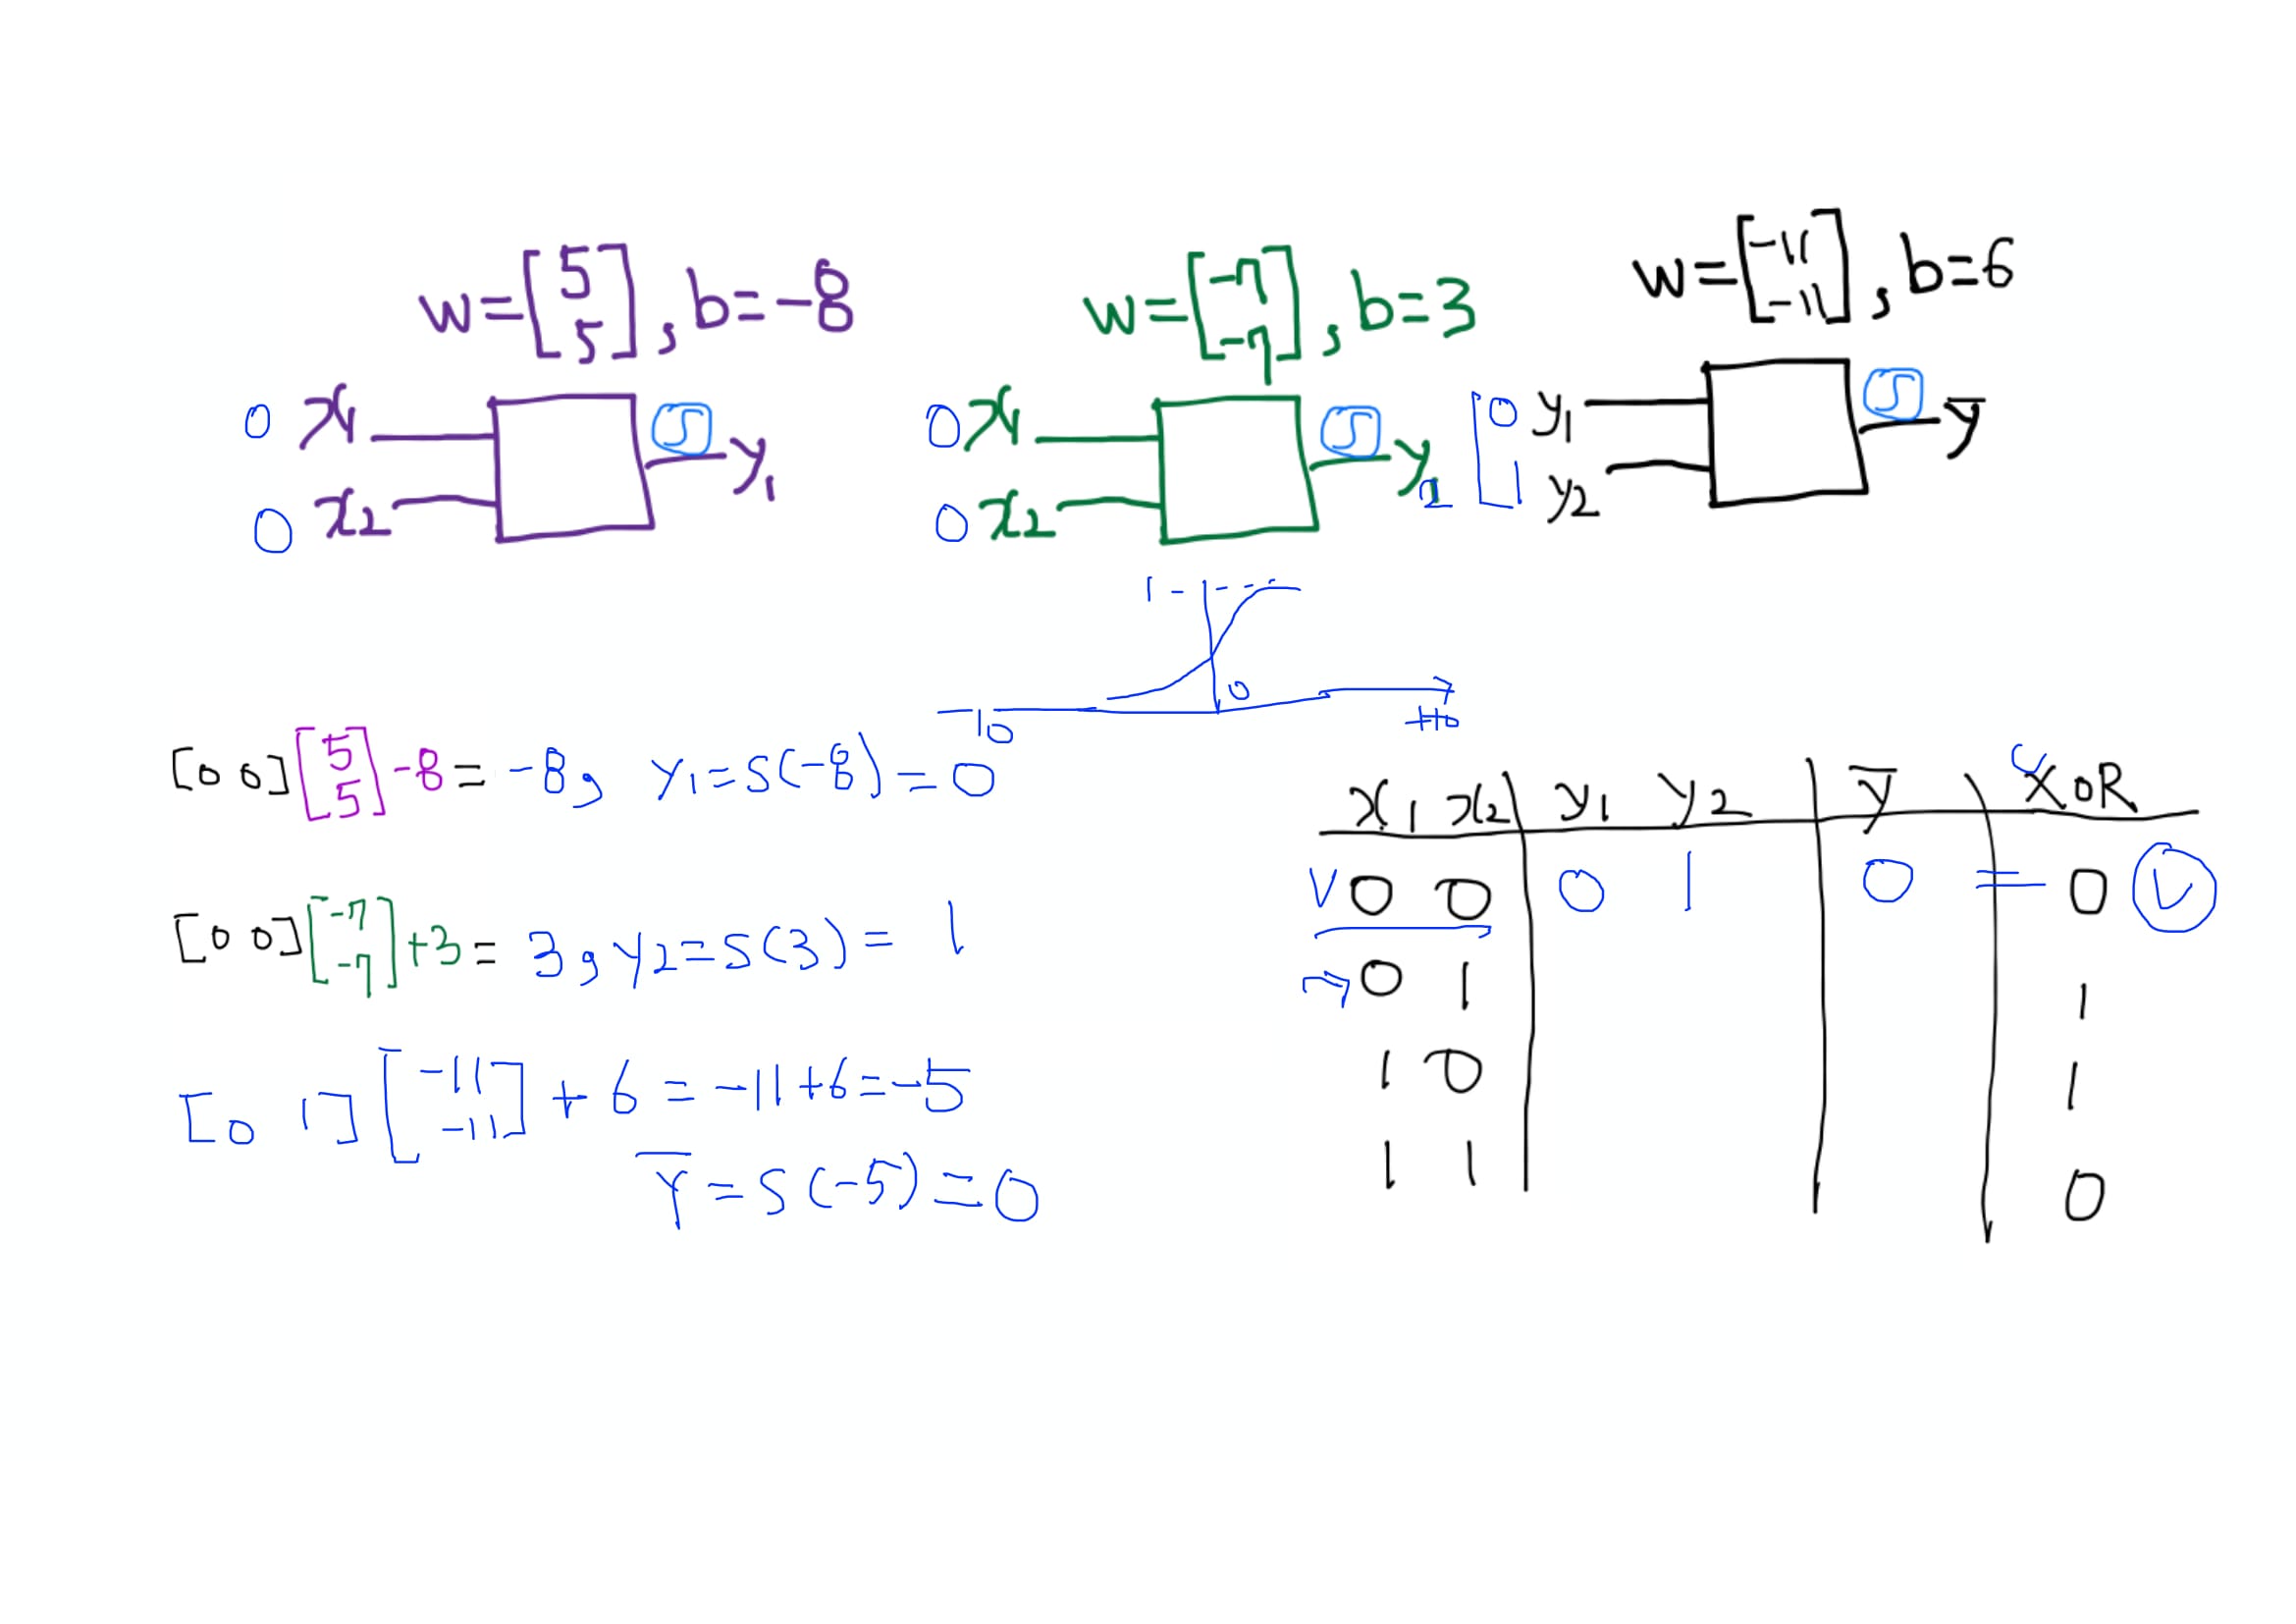 w = [5 5] , b = -8
w = [-7 -7] , b = 3
w = [-11 -11] , b = 6
0 x1 S y1
0 x2
0 x1 S y2
0 x2
[0 y1 S y̅
1] y2
1
0
-10 +10
[0 0] [5 5] -8 = -8, y1 = S(-8) = 0
[0 0] [-7 -7] +3 = 3, y2 = S(3) = 1
[0 1] [-11 -11] + 6 = -11+6 = -5
Y̅ = S(-5) = 0
x1 x2 y1 y2 y̅ XOR
0 0 0 1 0 = 0
→ 0 1 1
1 0 1
1 1 0